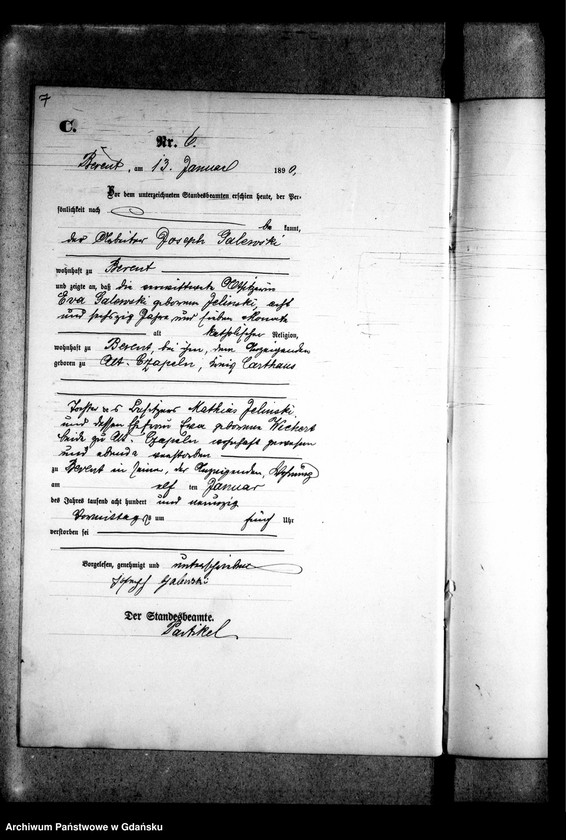 7
C.
Nr. 6.
Berent, am 13. Januar 1890.
Vor dem unterzeichneten Standesbeamten erschien heute, der Per-
sönlichkeit nach
be kannt,
der Arbeiter Joseph Galewski
wohnhaft zu Berent
und zeigte an, daß die verwittwete Altsitzerin
Eva Galewski geborene Jelinski, acht
und sechszig Jahre und sieben Monate
alt katholischer Religion,
wohnhaft zu Berent, bei ihm, dem Anzeigenden,
geboren zu Alt-Czapeln, Kreis Carthaus
Tochter des Besitzers Mathias Jelinski
und dessen Ehefrau Eva geborene Wickert
beide zu Alt-Czapeln wohnhaft gewesen
und ebenda verstorben
zu Berent in seiner, der Anzeigenden, Wohnung
am elf ten Januar
des Jahres tausend acht hundert und neunzig
Vormittags um fünf Uhr
verstorben sei
Vorgelesen, genehmigt und unterschrieben
Joseph Galewski
Der Standesbeamte.
Partikel
Archiwum Państwowe w Gdańsku